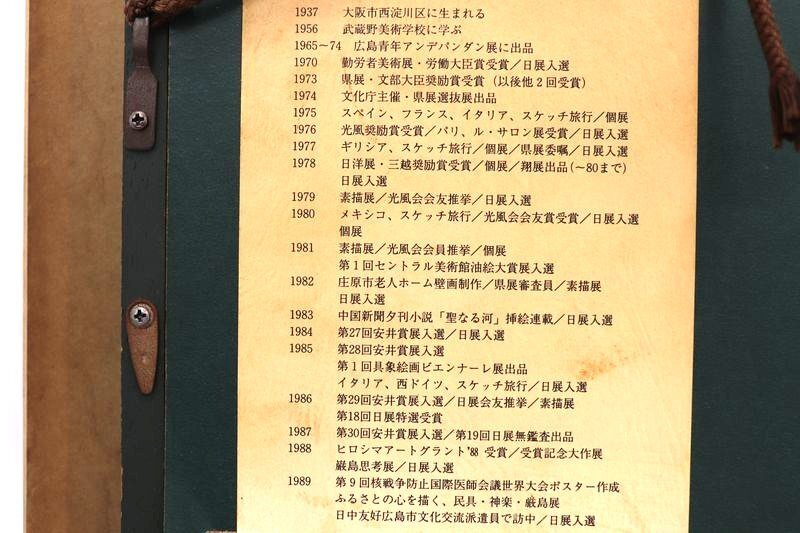 1937 大阪市西淀川区に生まれる
1956 武蔵野美術学校に学ぶ
1965〜74 広島青年アンデパンダン展に出品
1970 勤労者美術展・労働大臣賞受賞／日展入選
1973 県展・文部大臣奨励賞受賞（以後他2回受賞）
1974 文化庁主催・県展選抜展出品
1975 スペイン、フランス、イタリア、スケッチ旅行／個展
1976 光風奨励賞受賞／パリ、ル・サロン展受賞／日展入選
1977 ギリシア、スケッチ旅行／個展／県展委嘱／日展入選
1978 日洋展・三越奨励賞受賞／個展／翔展出品（〜80まで）
日展入選
1979 素描展／光風会会友推挙／日展入選
1980 メキシコ、スケッチ旅行／光風会会友賞受賞／日展入選
個展
1981 素描展／光風会会員推挙／個展
第1回セントラル美術館油絵大賞展入選
1982 庄原市老人ホーム壁画制作／県展審査員／素描展
日展入選
1983 中国新聞夕刊小説「聖なる河」挿絵連載／日展入選
1984 第27回安井賞展入選／日展入選
1985 第28回安井賞展入選
第1回具象絵画ビエンナーレ展出品
イタリア、西ドイツ、スケッチ旅行／日展入選
1986 第29回安井賞展入選／日展会友推挙／素描展
第18回日展特選受賞
1987 第30回安井賞展入選／第19回日展無鑑査出品
1988 ヒロシマアートグラント'88 受賞／受賞記念大作展
厳島思考展／日展入選
1989 第9回核戦争防止国際医師会議世界大会ポスター作成
ふるさとの心を描く、民具・神楽・厳島展
日中友好広島市文化交流派遣員で訪中／日展入選